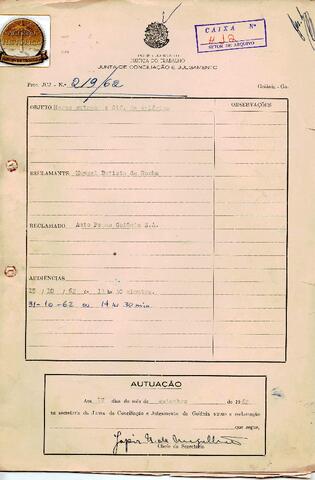 CAIXA Nº
412
SETOR DE ARQUIVO
PODER JUDICIÁRIO
JUSTIÇA DO TRABALHO
JUNTA DE CONCILIAÇÃO E JULGAMENTO
Proc. JCJ - N.º 219/62 Goiânia - Go.
OBJETO Horas extras e Dif. de salários OBSERVAÇÕES
RECLAMANTE Manoel Batista da Rocha
RECLAMADO Auto Peças Goiânia S.A.
AUDIÊNCIAS
31-10-62 às 14 hs 30 min.
AUTUAÇÃO
Aos dias do mês de setembro de 1962
na secretaria da Junta de Conciliação e Julgamento de Goiânia autuo a reclamação
que segue.
Chefe da Secretaria